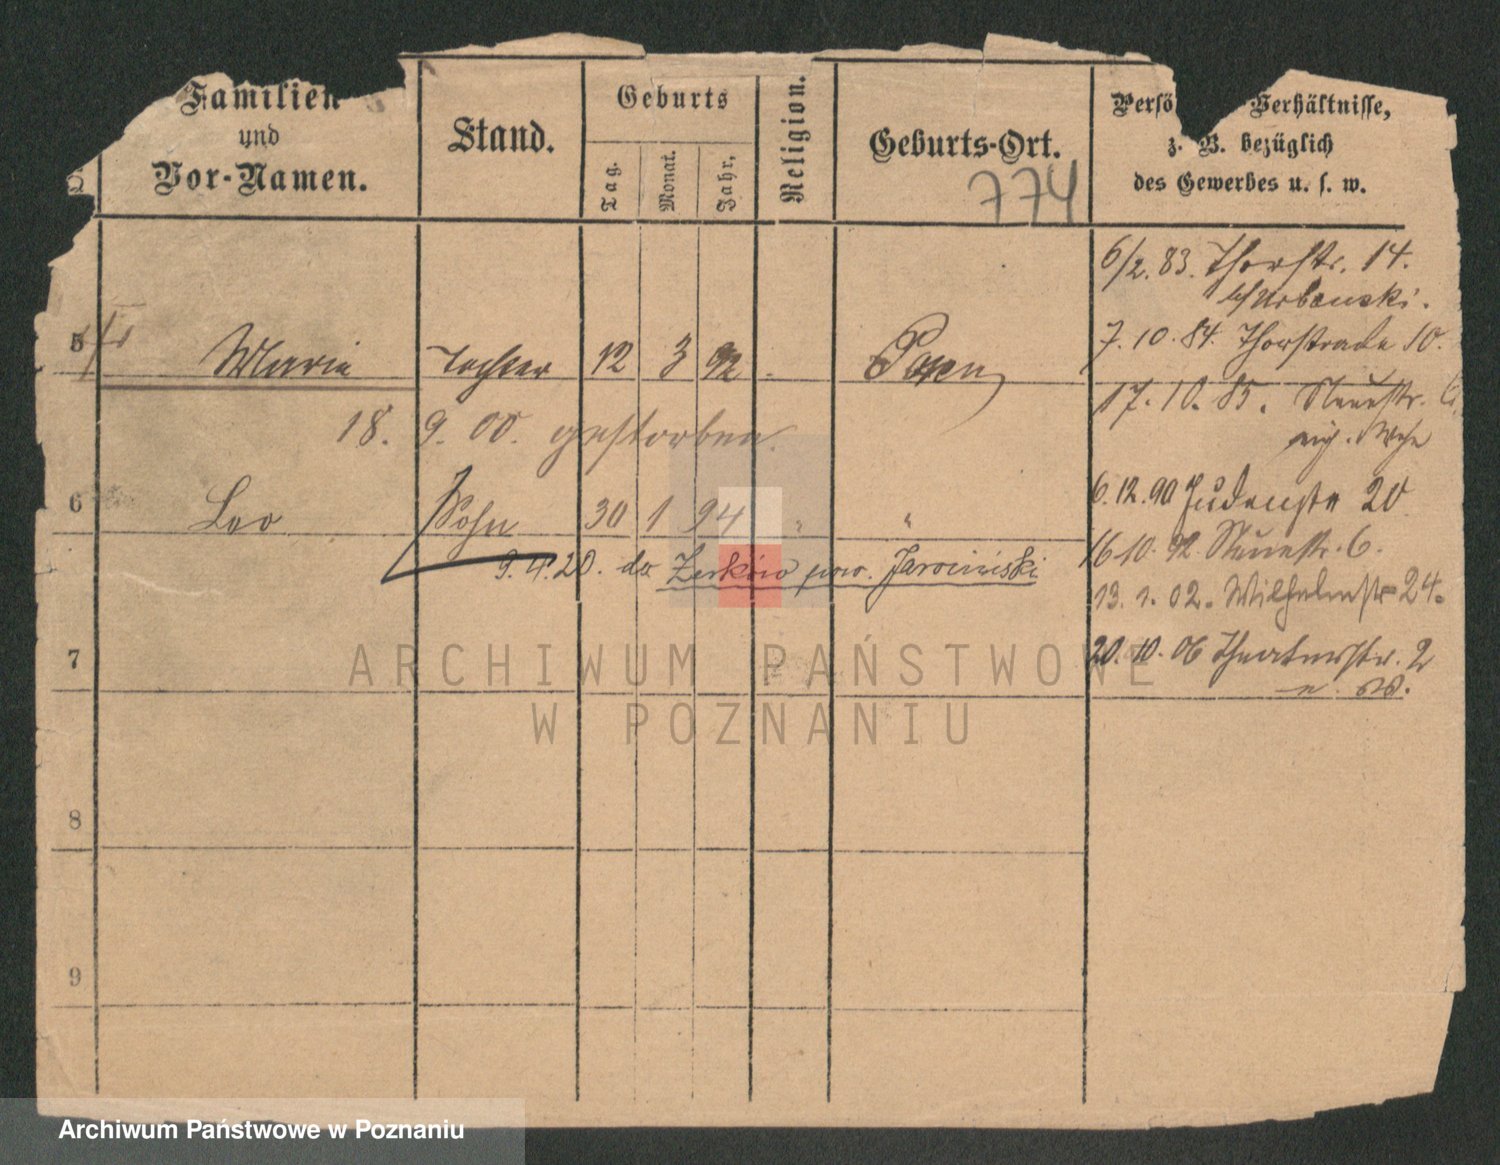 Familien
und
Vor-Namen.
Stand.
Geburts
Tag.
Monat.
Jahr,
Religion.
Geburts-Ort.
774
Persö Verhältnisse,
z. B. bezüglich
des Gewerbes u. s. w.
6/2. 83. Thorstr. 14.
b/Urbanski.
7. 10. 84. Thorstraße 10.
5 Marie Tochter 12 3 92 Posen
17. 10. 85. Neuestr. 6
18. 9. 00. gestorben.
6 Leo Sohn 30 1 94 " "
6. 12. 90 Judenstr 20
16.10. 92. Neuestr. 6.
9. 4. 20. do Żerków pow. Jarociński
13. 1. 02. Wilhelmstr 24.
7
20. 10. 06 Theaterstr. 2
8
9
ARCHIWUM PAŃSTWOWE
W POZNANIU
Archiwum Państwowe w Poznaniu